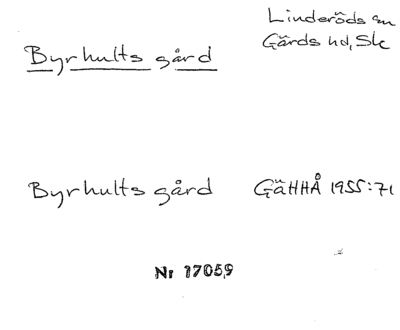 Linderöds sn
Byrhults gård
Gärds hd, Sk
Byrhults gård GäHHÅ 1955:71
Nr 17059